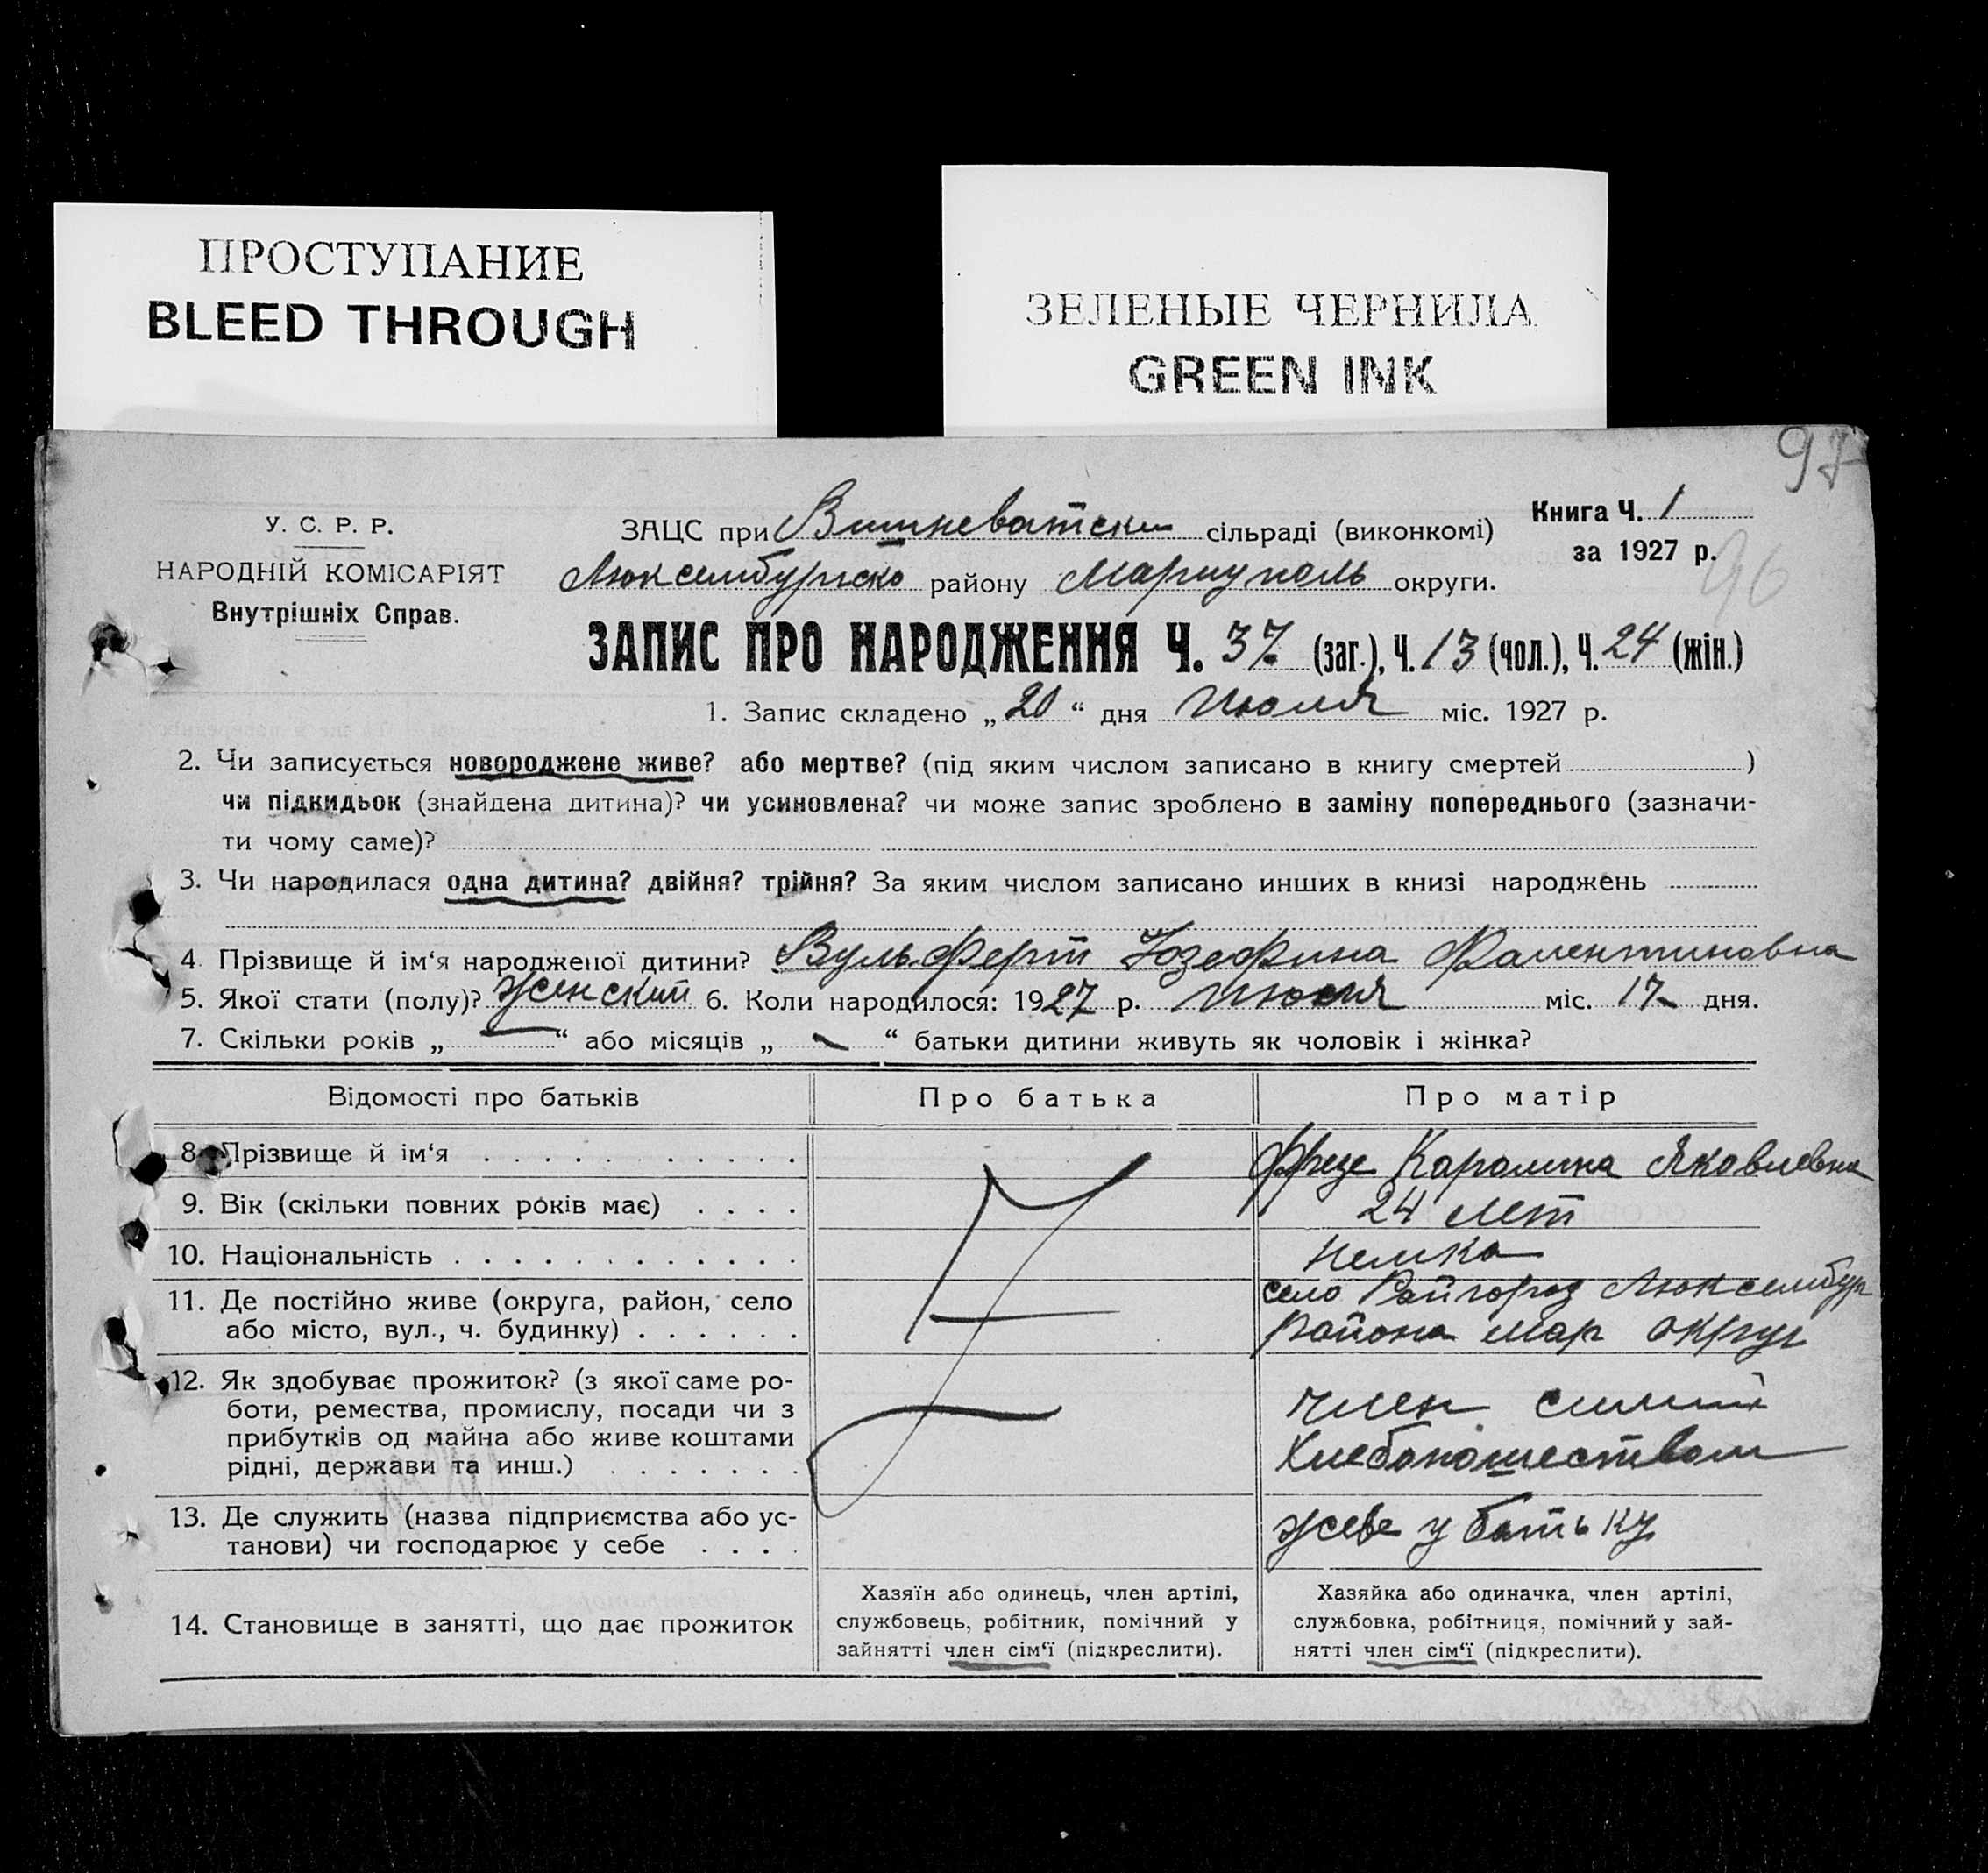 ПРОСТУПАНИЕ
BLEED THROUGH
ЗЕЛЕНЫЕ ЧЕРНИЛА
GREEN INK
97
96
У. С. Р. Р.
НАРОДНІЙ КОМІСАРІЯТ
Внутрішніх Справ.
ЗАЦС при Вишневатски сільраді (виконкомі)
Люксембургско району Мариуполь округи.
Книга Ч. 1
за 1927 р.
ЗАПИС ПРО НАРОДЖЕННЯ Ч. 37 (заг.), Ч. 13 (чол.), Ч. 24 (жін.)
1. Запис складено „20“ дня Июля міс. 1927 р.
2. Чи записується новороджене живе? або мертве? (під яким числом записано в книгу смертей )
чи підкидьок (знайдена дитина)? чи усиновлена? чи може запис зроблено в заміну попереднього (зазначи-
ти чому саме)?
3. Чи народилася одна дитина? двійня? трійня? За яким числом записано инших в книзі народжень
4. Прізвище й ім‘я народженої дитини? Вульферт Іозефина Фалентиновна
5. Якої стати (полу)? Женский 6. Коли народилося: 1927 р. міс. 17 дня.
7. Скільки років „ — “ або місяців „ — “ батьки дитини живуть як чоловік і жінка?
Відомості про батьків Про батька Про матір
8. Прізвище й ім‘я Фрезе Каролина Яковлевна
9. Вік (скільки повних років має) 24 лет
10. Національність Немка
11. Де постійно живе (округа, район, село
або місто, вул., ч. будинку)
село Райгород Люксембур
района мар округ
12. Як здобуває прожиток? (з якої саме ро-
боти, ремества, промислу, посади чи з
прибутків од майна або живе коштами
рідні, держави та инш.)
член симьи
Хлебопашеством
13. Де служить (назва підприємства або ус-
танови) чи господарює у себе
живе у батьку
14. Становище в занятті, що дає прожиток
Хазяїн або одинець, член артілі,
службовець, робітник, помічний у
зайнятті член сім‘ї (підкреслити).
Хазяйка або одиначка, член артілі,
службовка, робітниця, помічний у зай-
нятті член сім‘ї (підкреслити).